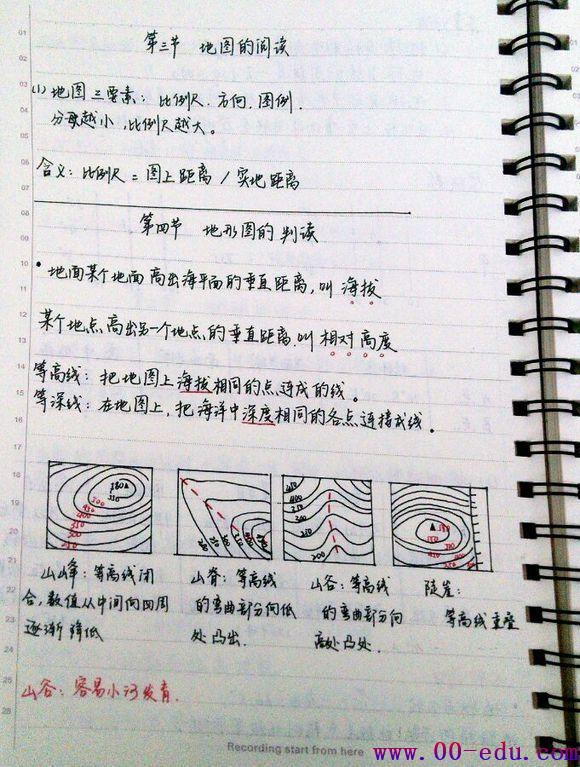 第三节 地图的阅读
(1) 地图三要素：比例尺、方向、图例.
分母越小,比例尺越大。
含义：比例尺 = 图上距离 / 实地距离
第四节 地形图的判读
· 地面某个地面高出海平面的垂直距离,叫海拔
某个地点高出另一个地点的垂直距离叫相对高度
等高线：把地图上海拔相同的点连成的线。
等深线：在地图上,把海洋中深度相同的各点连接成线。
山峰：等高线闭
合,数值从中间向四周
逐渐降低
山脊：等高线
的弯曲部分向低
处凸出.
山谷：等高线
的弯曲部分向
高处凸处.
陡崖：
等高线重叠
山谷：容易小河发育.
Recording start from here
www.00-edu.com